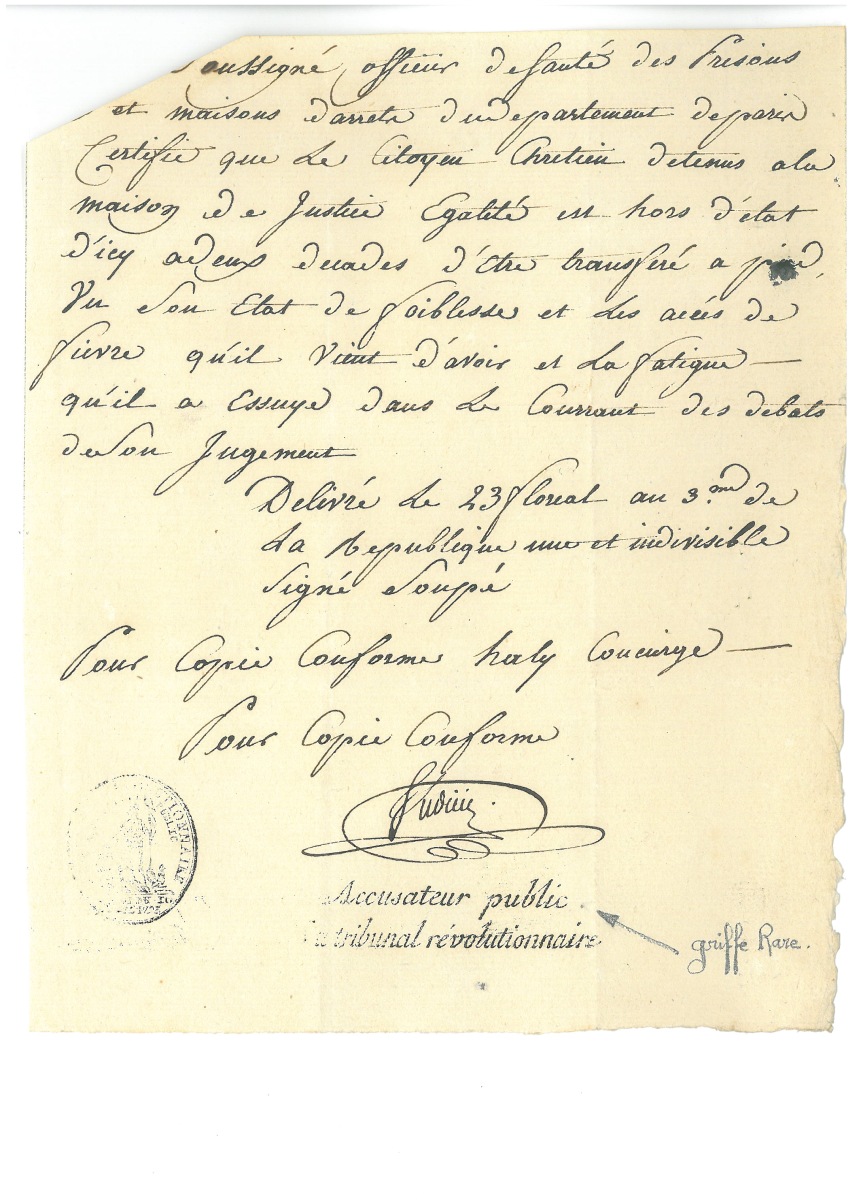 Soussigné officier de Santé des Prisons
et maisons d'arrets du departement de paris
Certifie que Le Citoyen Chretien detenus a la
maison de Justice Egalité est hors d'état
d'icy a deux decades d'être transferé a pied,
Vu Son Etat de foiblesse et Les accés de
fievre qu'il Vient d'avoir et La fatigue —
qu'il a Essuyé dans Le Courrant des debats
de Son Jugement
Delivré Le 23 floreal an 3.me de
La Republique une et indivisible
Signé Soupé
Pour Copie Conforme haly Concierge —
Pour Copie Conforme
Accusateur public
tribunal révolutionnaire
griffe Rare.
TIONNAIRE